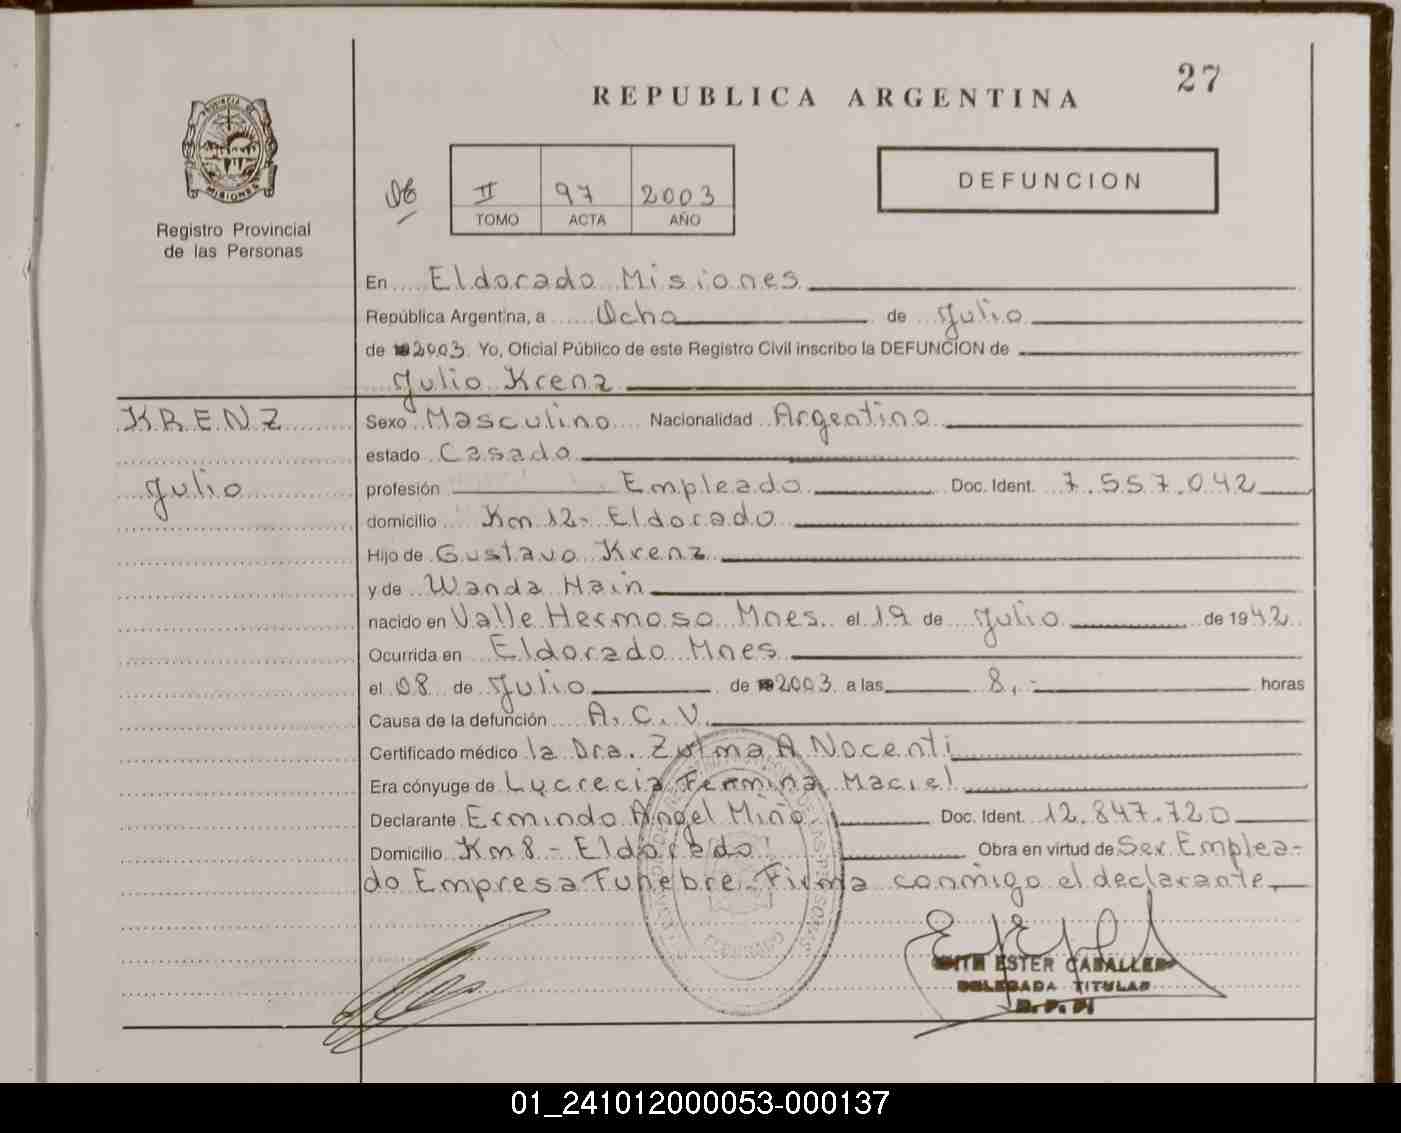 27
REPUBLICA ARGENTINA
PROVINCIA DE
MISIONES
Registro Provincial
de las Personas
II 97 2003
TOMO ACTA AÑO
DEFUNCION
En Eldorado Misiones
República Argentina, a Ocho de Julio
de 2003 Yo, Oficial Público de este Registro Civil inscribo la DEFUNCION de
Julio Krenz
KRENZ
Julio
Sexo Masculino Nacionalidad Argentino
estado Casado
profesión Empleado Doc. Ident. 7.557.042
domicilio Km 12- Eldorado
Hijo de Gustavo Krenz
y de Wanda Hain
nacido en Valle Hermoso Mnes. el 19 de Julio de 1942
Ocurrida en Eldorado Mnes
el 08 de Julio de 2003 a las 8,- horas
Causa de la defunción A.C.V.
Certificado médico la Dra. Zulma A Nocenti
Era cónyuge de Lucrecia Fermina Maciel
Declarante Ermindo Angel Miño Doc. Ident. 12.847.720
Domicilio Km 8 - Eldorado Obra en virtud de Ser Emplea-
do Empresa Funebre. Firma conmigo el declarante
ELDORADO
EDITH ESTER CABALLERO
DELEGADA TITULAR
R. P. P.
01_241012000053-000137